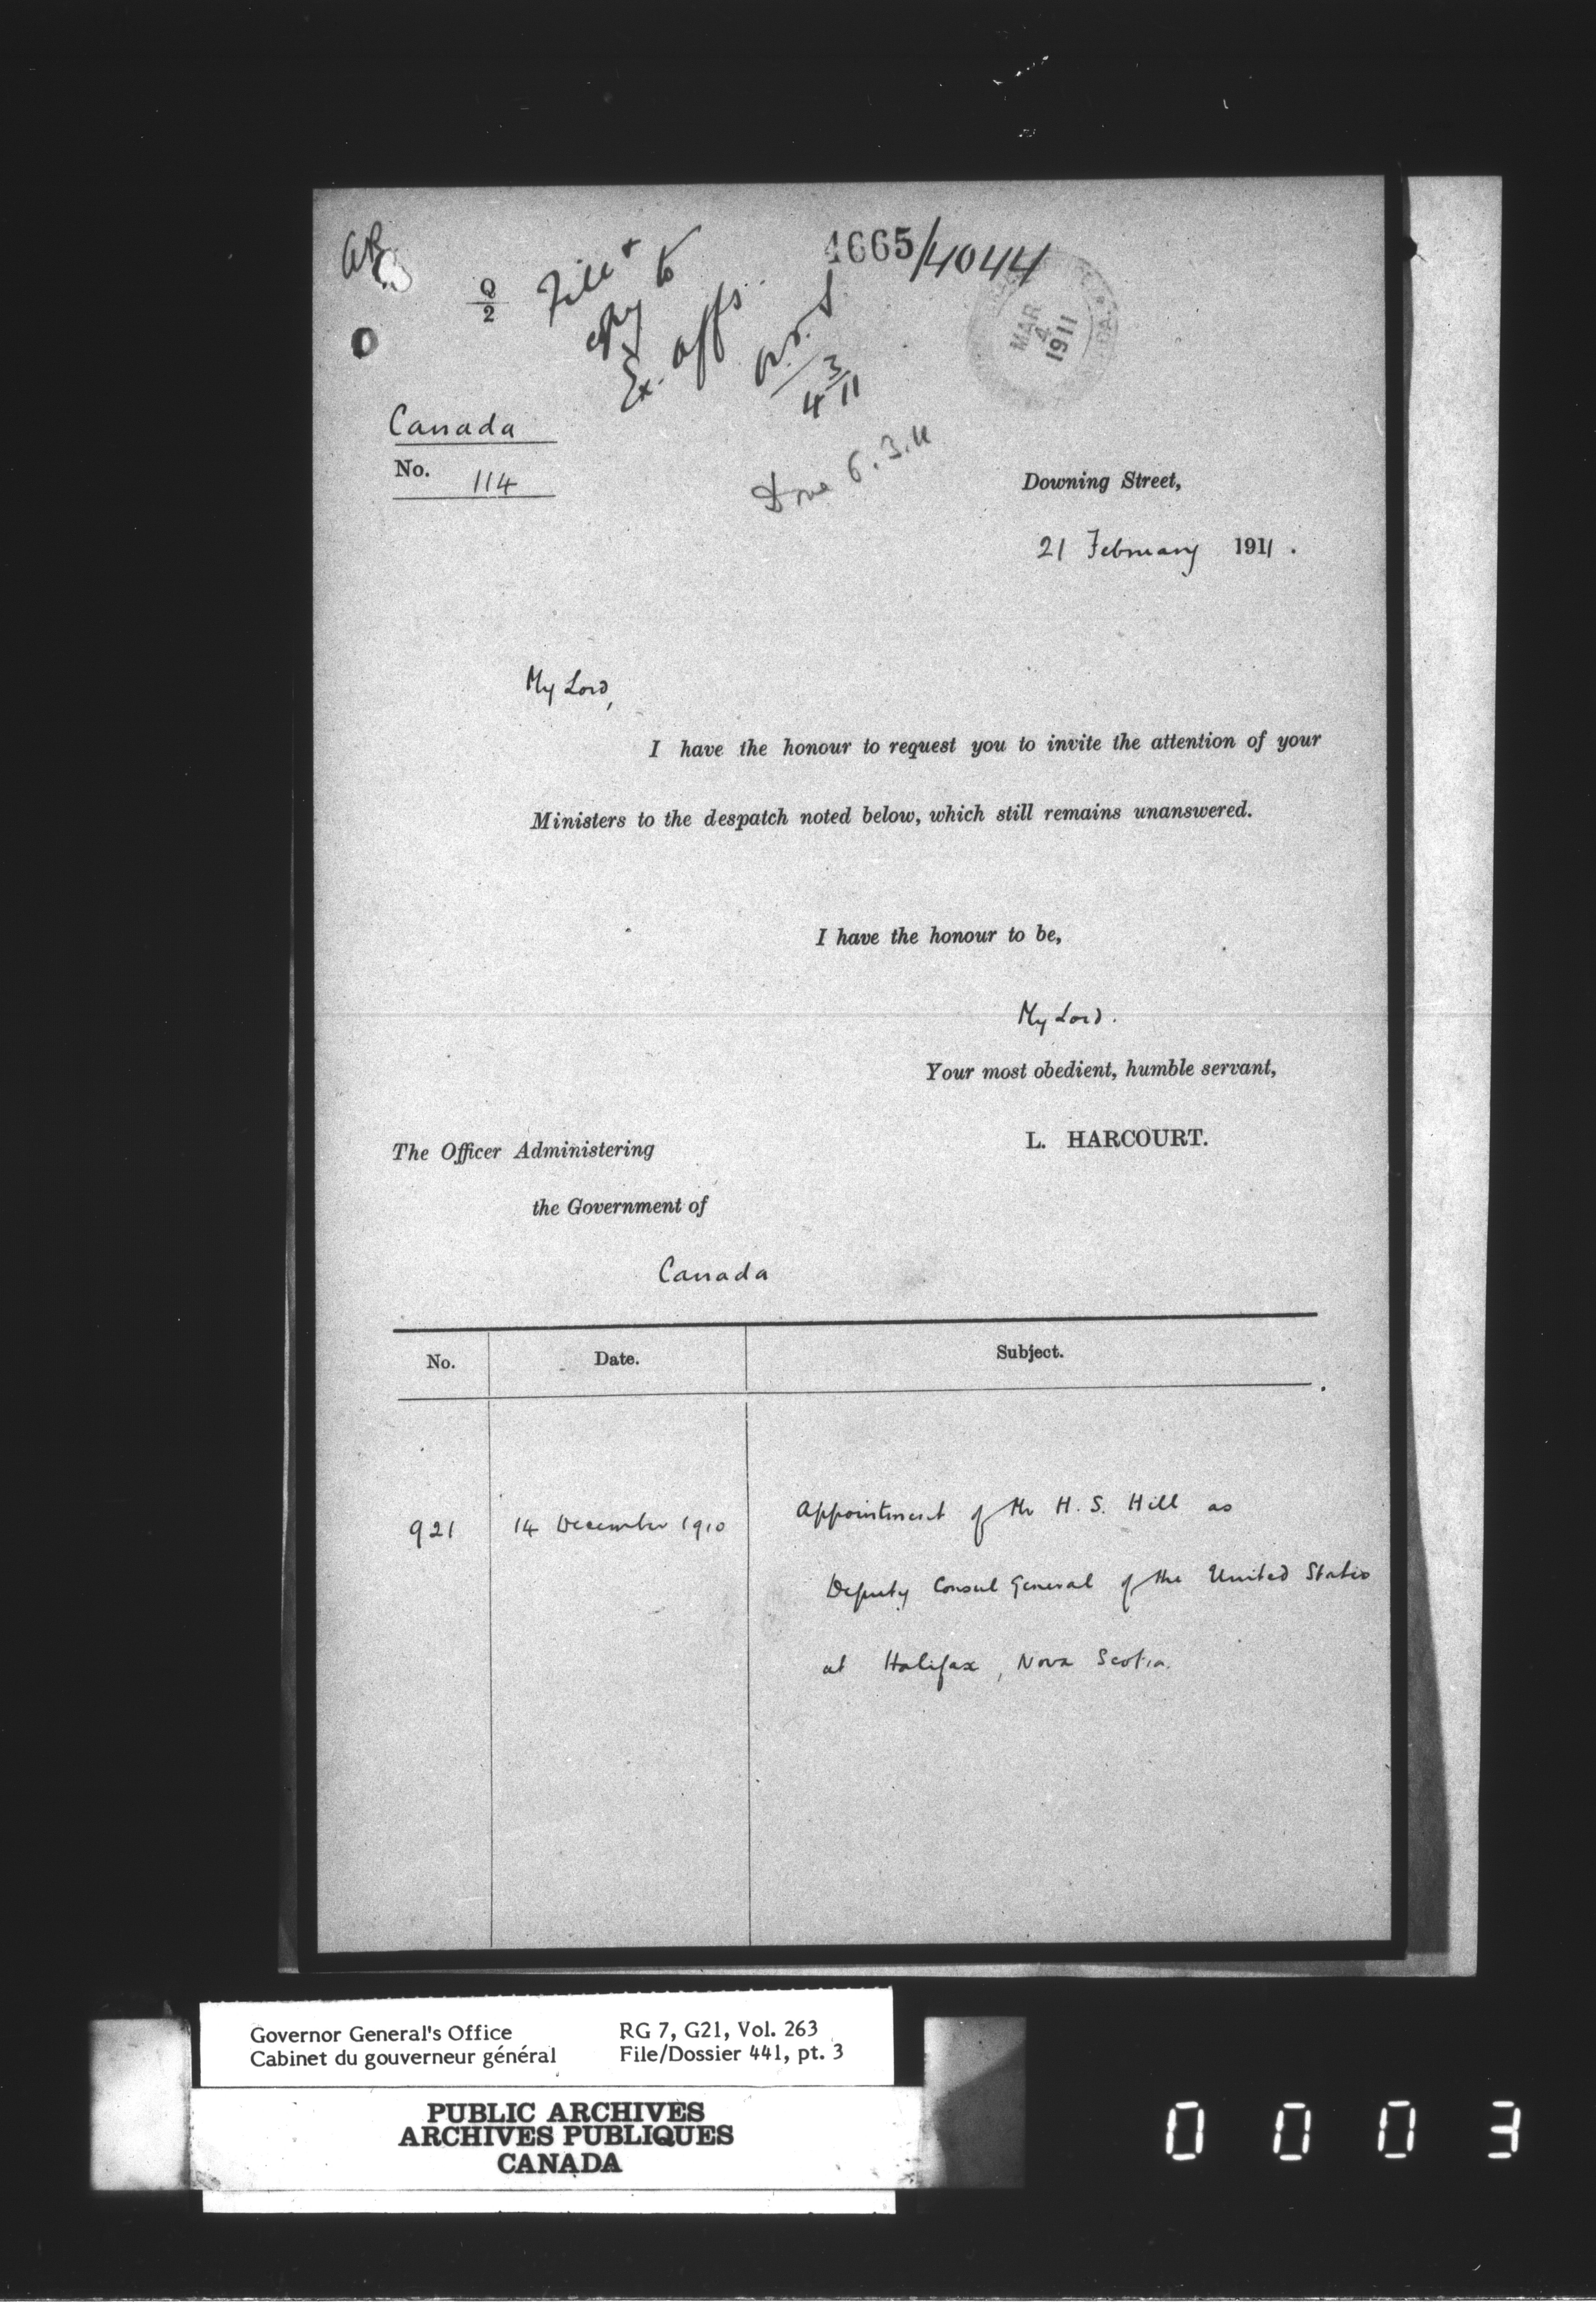 4665/4044
Q
2
File +
copy to
Ex. Affs.
4/3/11
MAR
4
1911
Done 6.3.11
Canada
No. 114
Downing Street,
21 February 1911.
My Lord,
I have the honour to request you to invite the attention of your
Ministers to the despatch noted below, which still remains unanswered.
I have the honour to be,
My Lord.
Your most obedient, humble servant,
L. HARCOURT.
The Officer Administering
the Government of
Canada
No. Date. Subject.
921 14 December 1910 Appointment of Mr H. S. Hill as
Deputy Consul General of the United States
at Halifax, Nova Scotia.
Governor General's Office RG 7, G21, Vol. 263
Cabinet du gouverneur général File/Dossier 441, pt. 3
PUBLIC ARCHIVES
ARCHIVES PUBLIQUES
CANADA
0003